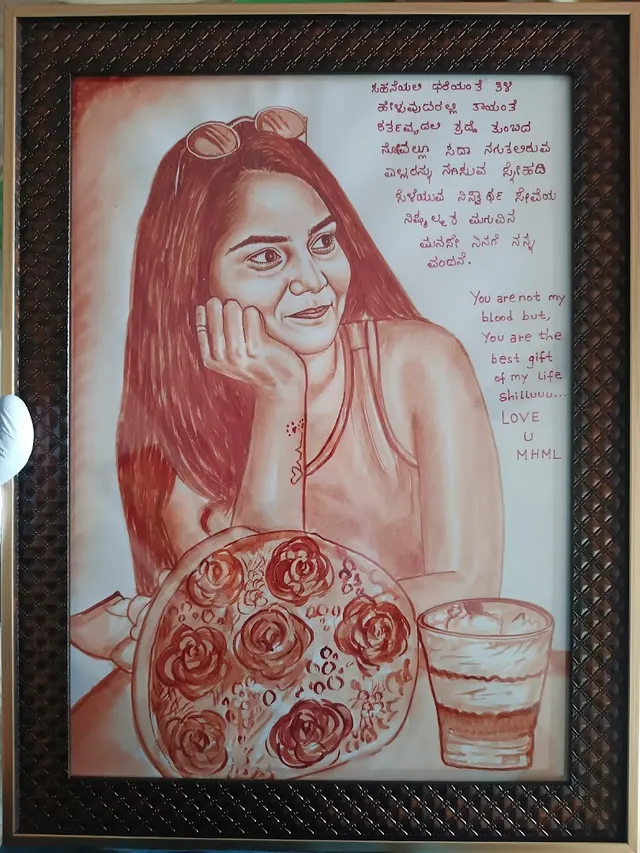 ಸಹನೆಯಲಿ ಧರೆಯಂತೆ ತಿಳಿ
ಹೇಳುವುದರಲ್ಲಿ ತಾಯಂತೆ
ಕರ್ತವ್ಯದಲಿ ಶ್ರದ್ಧೆ ತುಂಬಿದ
ನೋವೆಲ್ಲೂ ಸದಾ ನಗುತಲಿರುವ
ಎಲ್ಲರನ್ನು ನಗಿಸುವ ಸ್ನೇಹದಿ
ಸೆಳೆಯುವ ನಿಸ್ವಾರ್ಥ ಸೇವೆಯ
ನಿಷ್ಕಲ್ಮಶ ಮಗುವಿನ
ಮನಸೇ ನಿನಗೆ ನನ್ನ
ವಂದನೆ.
You are not my
blood but,
You are the
best gift
of my life
Shilluuu...
LOVE
U
MHML